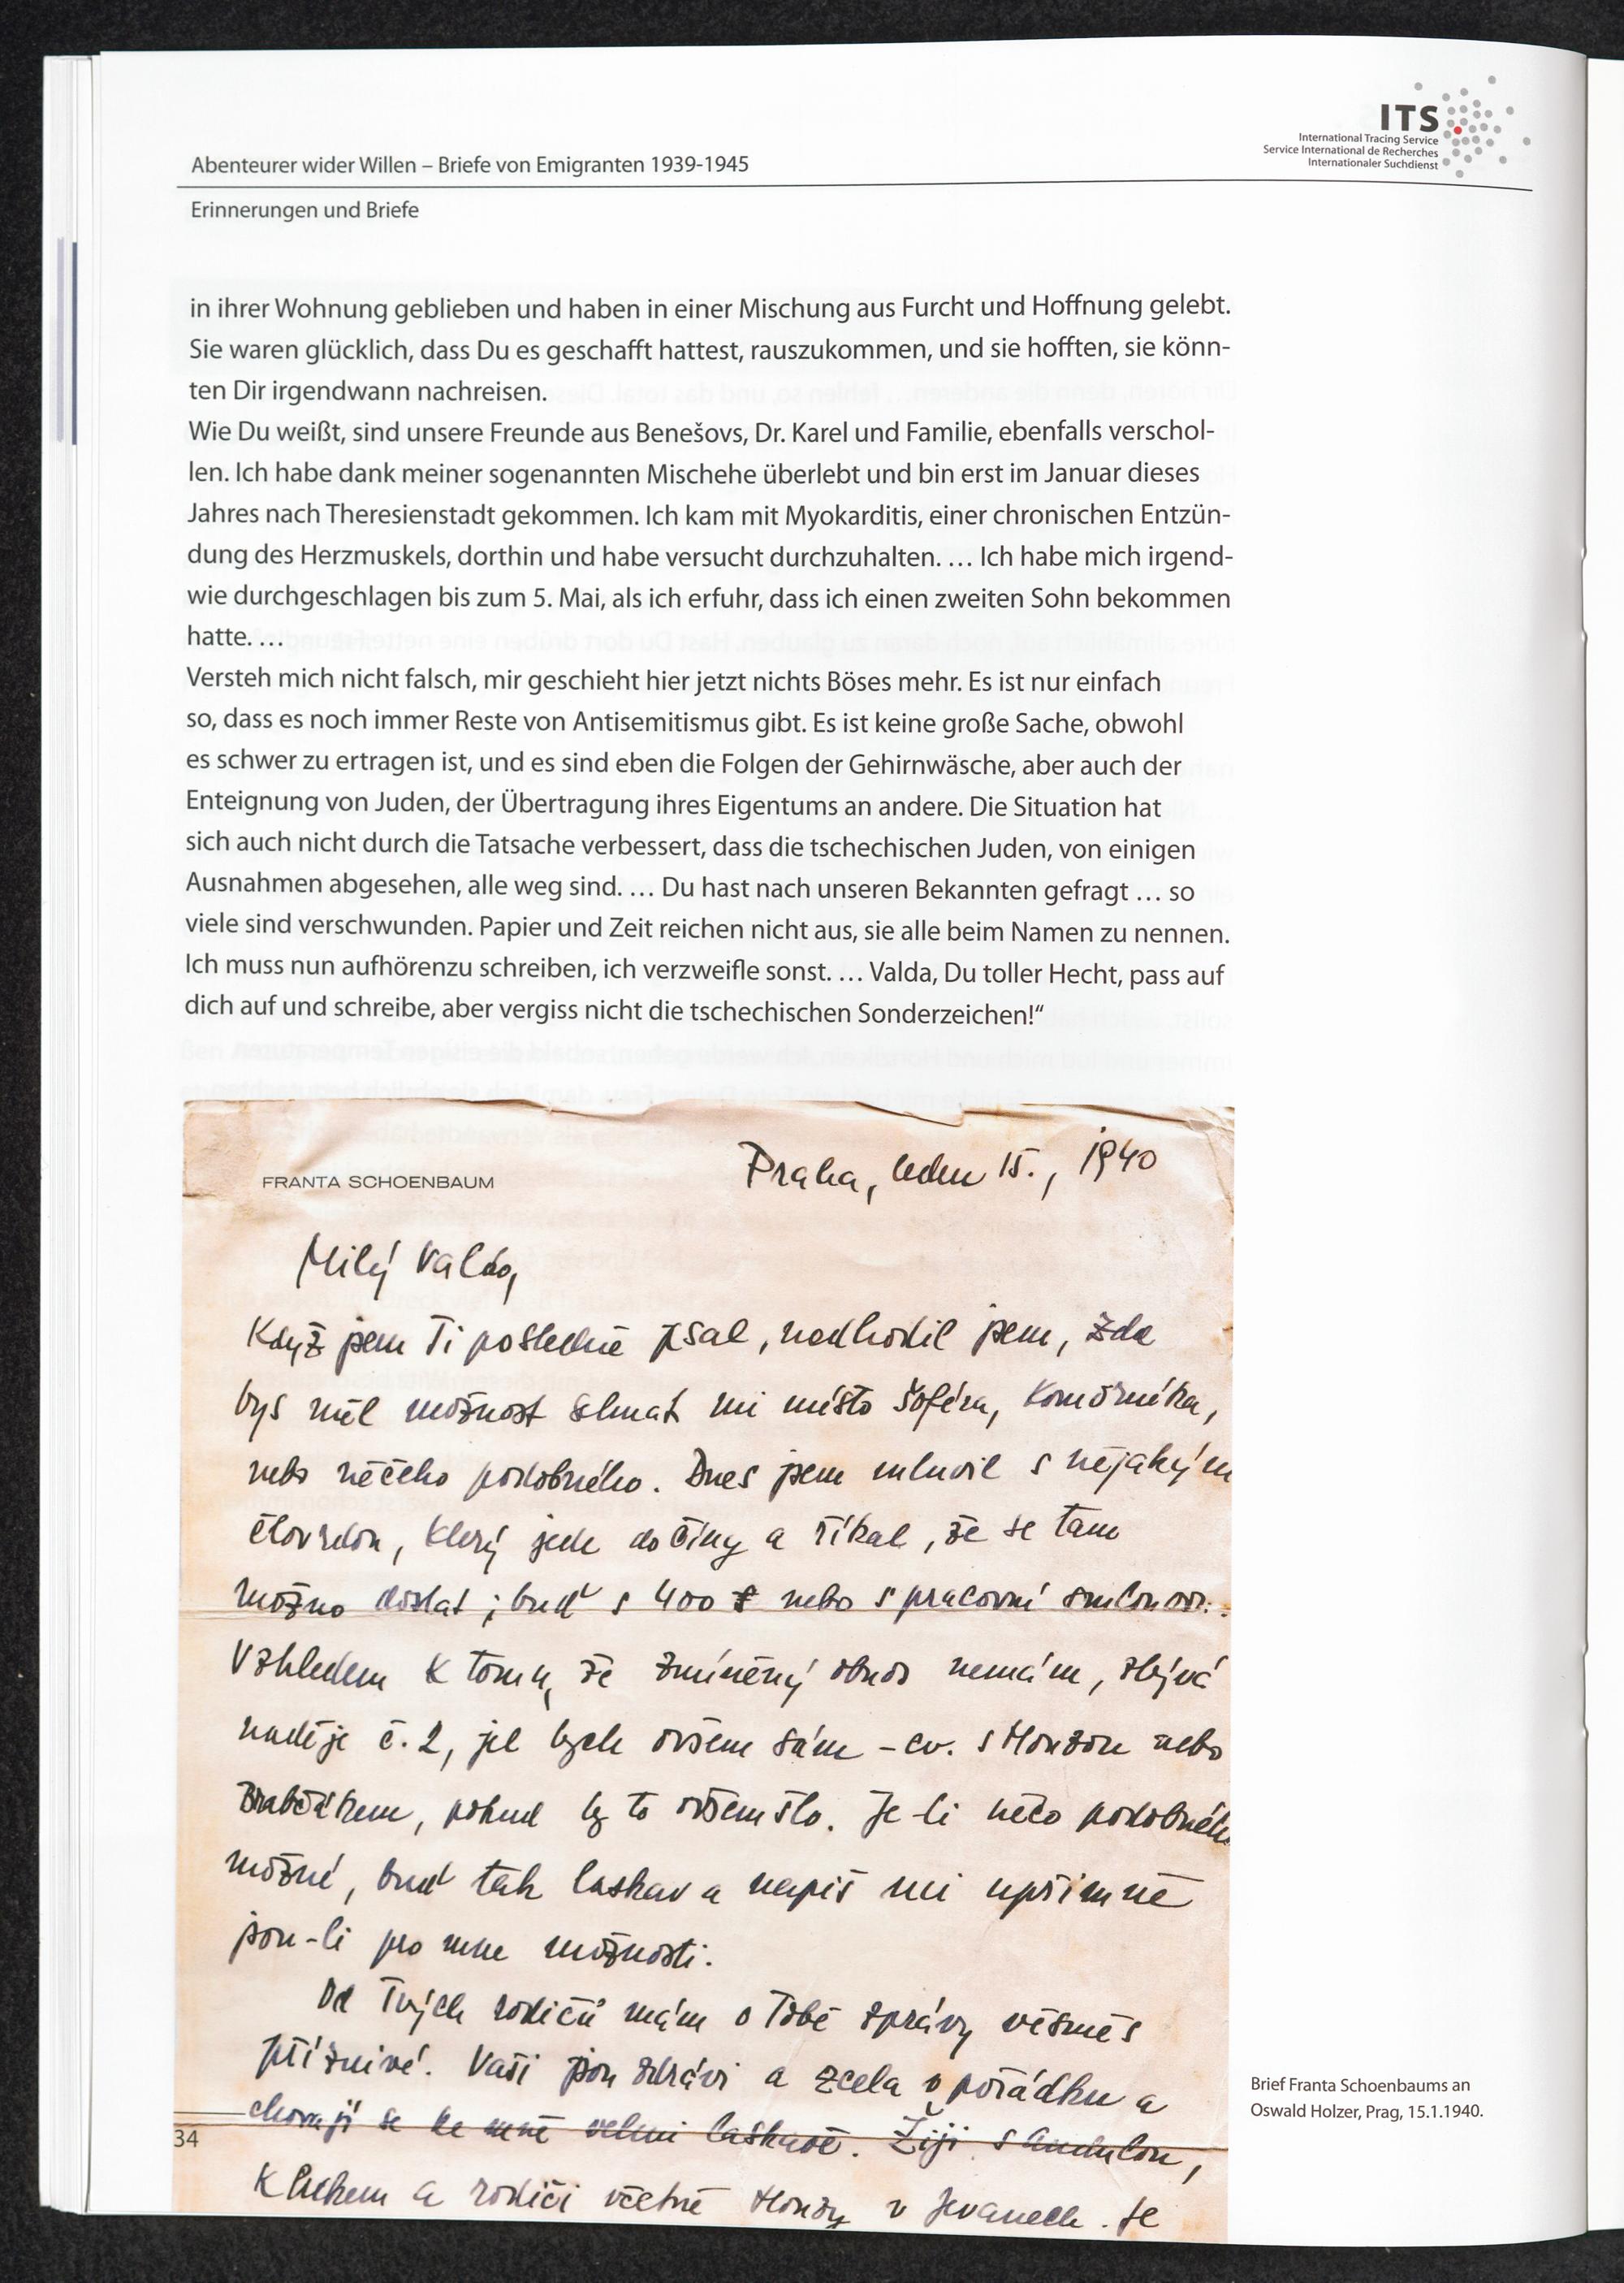 ITS
International Tracing Service
Service International de Recherches
Internationaler Suchdienst
Abenteurer wider Willen – Briefe von Emigranten 1939-1945
Erinnerungen und Briefe
in ihrer Wohnung geblieben und haben in einer Mischung aus Furcht und Hoffnung gelebt.
Sie waren glücklich, dass Du es geschafft hattest, rauszukommen, und sie hofften, sie könn-
ten Dir irgendwann nachreisen.
Wie Du weißt, sind unsere Freunde aus Benešovs, Dr. Karel und Familie, ebenfalls verschol-
len. Ich habe dank meiner sogenannten Mischehe überlebt und bin erst im Januar dieses
Jahres nach Theresienstadt gekommen. Ich kam mit Myokarditis, einer chronischen Entzün-
dung des Herzmuskels, dorthin und habe versucht durchzuhalten. … Ich habe mich irgend-
wie durchgeschlagen bis zum 5. Mai, als ich erfuhr, dass ich einen zweiten Sohn bekommen
hatte. …
Versteh mich nicht falsch, mir geschieht hier jetzt nichts Böses mehr. Es ist nur einfach
so, dass es noch immer Reste von Antisemitismus gibt. Es ist keine große Sache, obwohl
es schwer zu ertragen ist, und es sind eben die Folgen der Gehirnwäsche, aber auch der
Enteignung von Juden, der Übertragung ihres Eigentums an andere. Die Situation hat
sich auch nicht durch die Tatsache verbessert, dass die tschechischen Juden, von einigen
Ausnahmen abgesehen, alle weg sind. … Du hast nach unseren Bekannten gefragt … so
viele sind verschwunden. Papier und Zeit reichen nicht aus, sie alle beim Namen zu nennen.
Ich muss nun aufhörenzu schreiben, ich verzweifle sonst. … Valda, Du toller Hecht, pass auf
dich auf und schreibe, aber vergiss nicht die tschechischen Sonderzeichen!“
FRANTA SCHOENBAUM
Praha, leden 15., 1940
Milý Valdo,
Když jsem Ti posledně psal, nadhodil jsem, zda
bys měl možnost sehnat mi místo šoféra, komorníka,
nebo něčeho podobného. Dnes jsem mluvil s nějakým
člověkem, který jede do Číny a říkal, že se tam
možno dostat; buď s 400 $ nebo s pracovní smlouvou.
Vzhledem k tomu, že zmíněný obnos nemám, zbývá
naděje č. 2, jel bych ovšem sám – ev. s Honzou nebo
Brabčákem, pokud by to ovšem šlo. Je-li něco podobného
možné, buď tak laskav a napiš mi upřímně
jsou-li pro mne možnosti.
Od Tvých rodičů mám o Tobě zprávy vesměs
příznivé. Vaši jsou zdrávi a zcela v pořádku a
chovají se ke mně velmi laskavě. Žiji s Andulou,
klukem a rodiči včetně Honzy v Jevanech. Je
Brief Franta Schoenbaums an
Oswald Holzer, Prag, 15.1.1940.
34